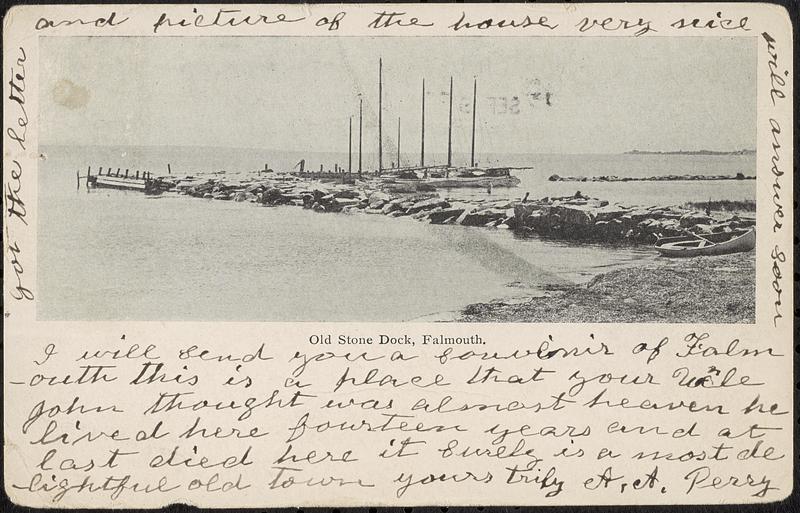 got the letter
and picture of the house very nice
will answer soon
SEP
Old Stone Dock, Falmouth.
I will send you a souvinir of Falm
-outh this is a place that your Uncle
John thought was almost heaven he
lived here fourteen years and at
last died here it surely is a most de
-lightful old town yours truly A. A. Perry